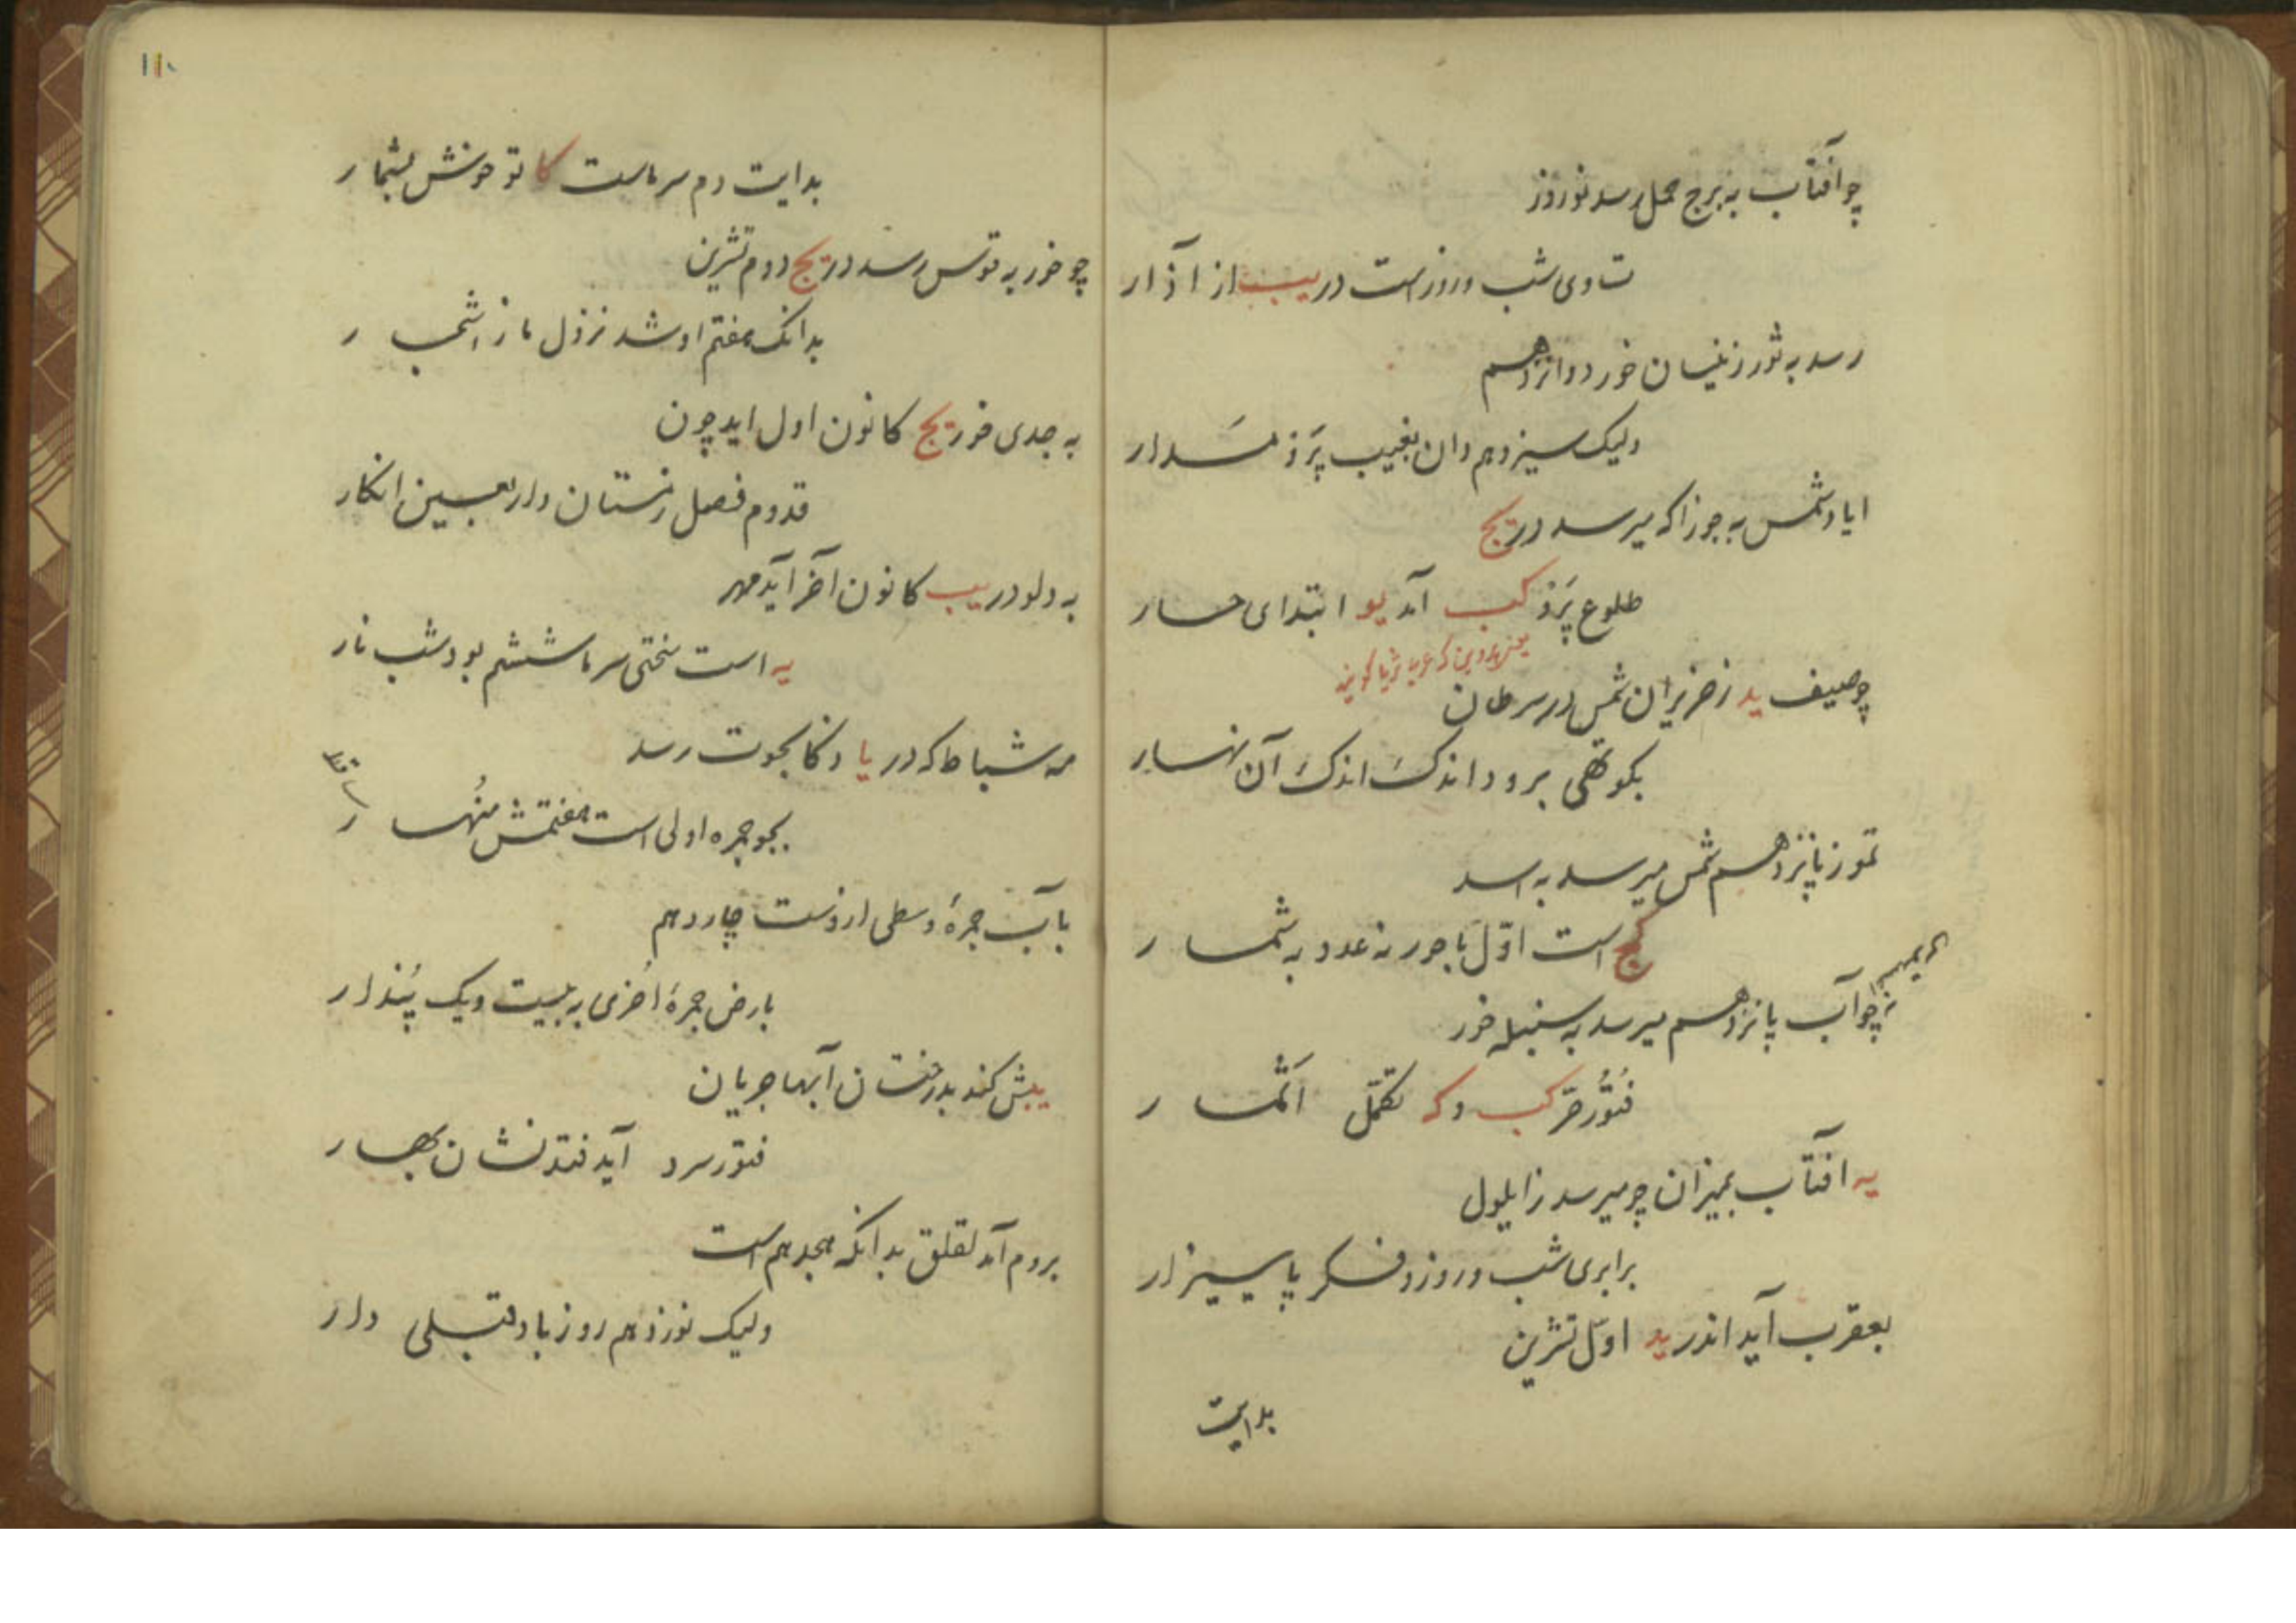 چو آفتاب به برج حمل رسد نوروز
تساوی شب و روز است در یب از آذار
رسد به ثور ز نیسان خور دوازدهم
ولیک سیزدهم دان بغیب پرن مدار
ایار شمس به جوزا که میرسد در یج
طلوع پرن کب آمد یو ابتدای حار
یعنی پروین که عرب ثریا گویند
چو صیف ید ز حزیران شمس در سرطان
بکوتهی برود اندک اندک آن نهار
تموز پانزدهم شمس میرسد به اسد
کج است اوّل باحور نه عدد به شمار
چو آب پانزدهم میرسد به سنبله خور
فتور حرّ کب و که تکمّل اثمار
یه افتاب بمیزان چو میرسد ز ایلول
برابری شب و روز و فکر پاییز ار
بعقرب آید اندر ید اوّل تشرین
بدایت
۱۱۰
بدایت دم سرماست کا تو خوش بشمار
چو خور به قوس رسد در یج دوم تشرین
بدانک هفتم او شد نزول ماز اشجار
به جدی خور یج کانون اول اید چون
قدوم فصل زمستان و اربعین انکار
به دلو در یب کانون آخر آید مهر
یه است سختی سرما ششم بود شب نار
مه شباط که در یا و کا بحوت رسد
بجو جمره اولی است هفتمش منهار
بآب جمرهٔ وسطی اروست چاردهم
بارض جمرهٔ اخری به بیست و یک پندار
یبش کند بدرختان آبها جریان
فتور سرد آید فتد نشان بهار
بروم آمد لقلق بدانکه هجدهم است
ولیک نوزدهم روز باد قبلی دار